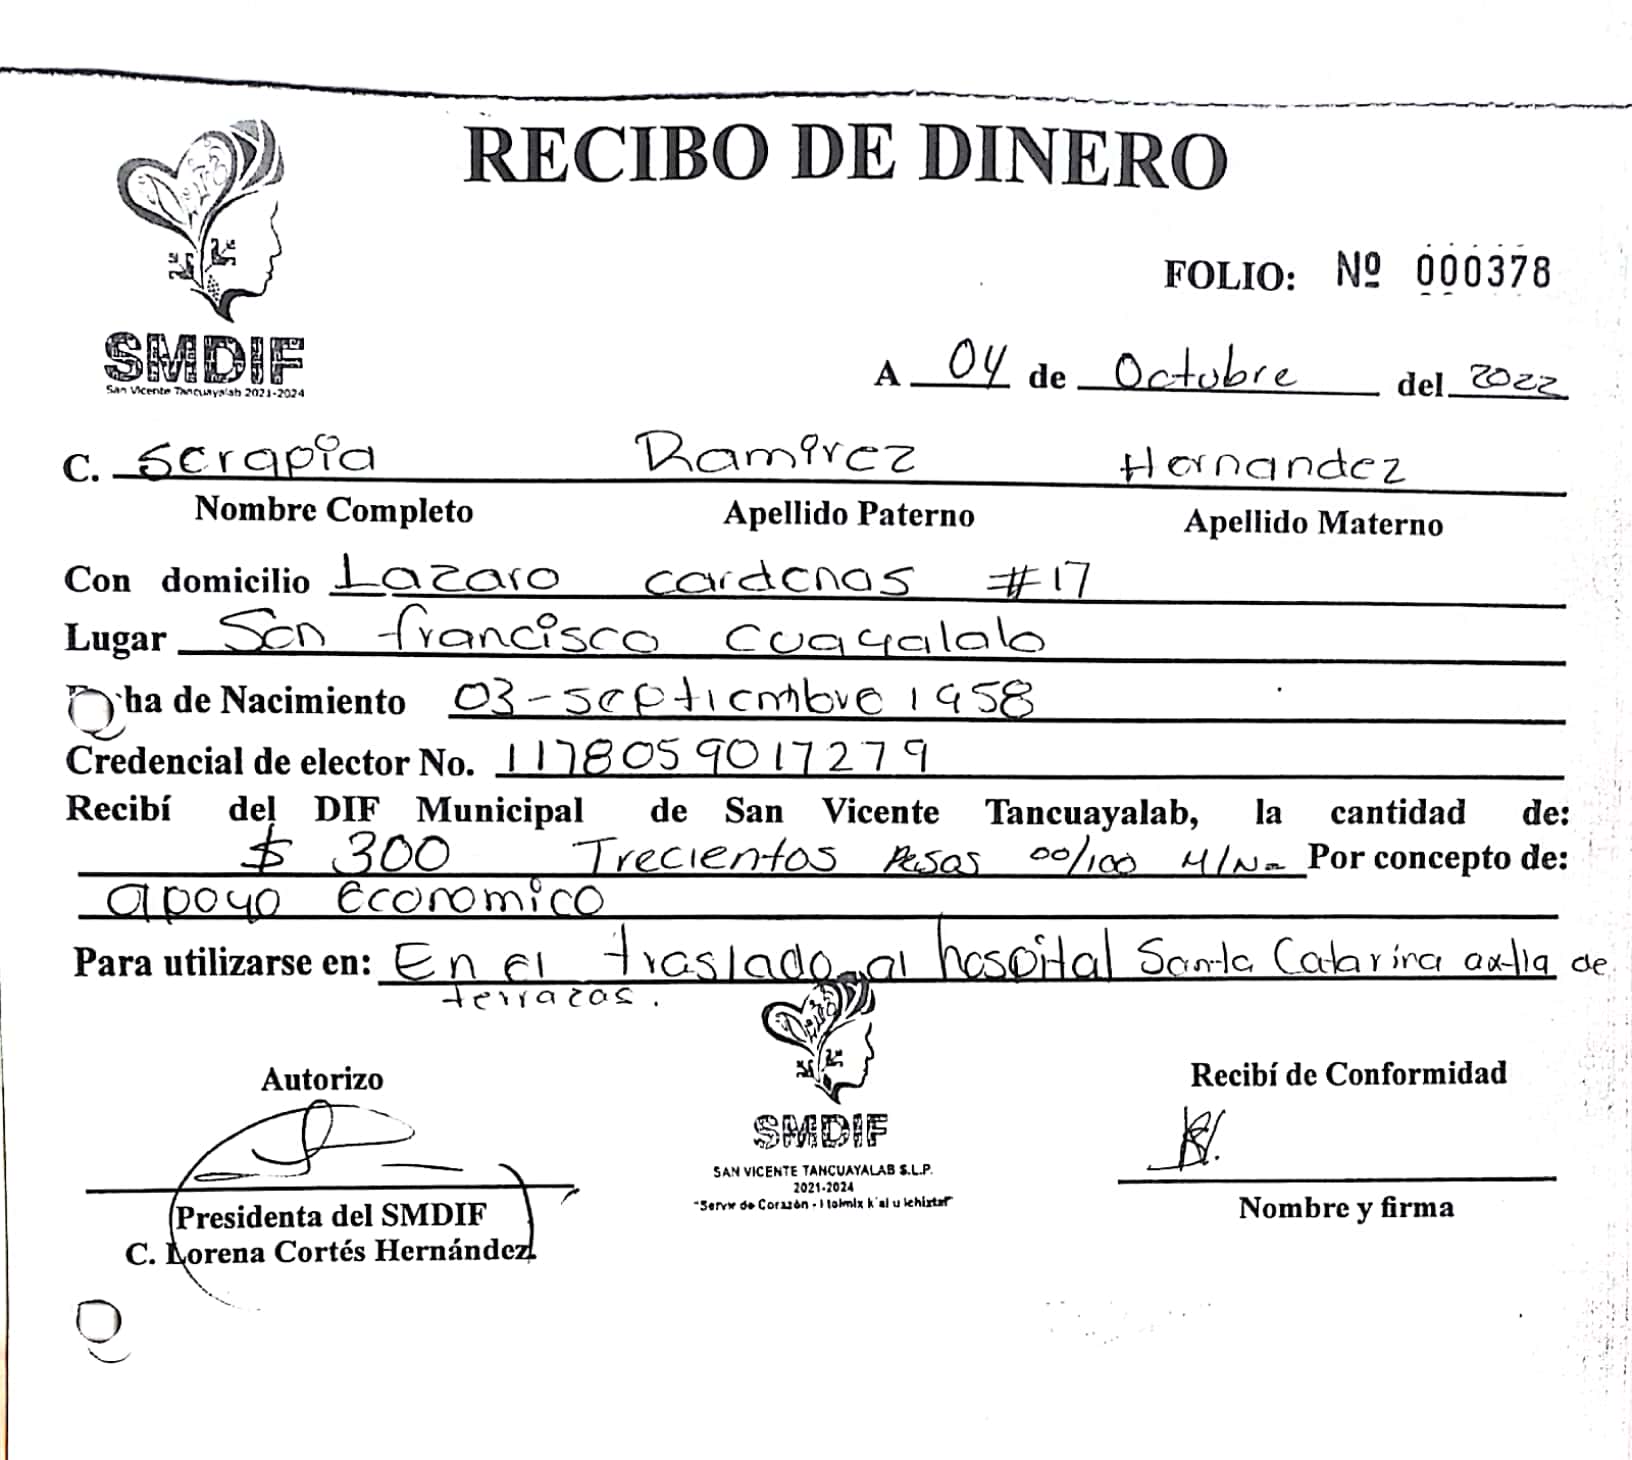 RECIBO DE DINERO
SMDIF
San Vicente Tancuayalab 2021-2024
FOLIO: Nº 000378
A 04 de Octubre del 2022
C. Serapia Ramirez Hernandez
Nombre Completo Apellido Paterno Apellido Materno
Con domicilio Lazaro cardenas #17
Lugar San francisco Cuayalalo
ha de Nacimiento 03-septiembre 1958
Credencial de elector No. 1178059017279
Recibí del DIF Municipal de San Vicente Tancuayalab, la cantidad de:
$ 300 Trecientos Pesos 00/100 M/N Por concepto de:
apoyo Economico
Para utilizarse en: En el traslado al hospital Santa Catarina de
terrazas.
Autorizo
Recibí de Conformidad
SMDIF
SAN VICENTE TANCUAYALAB S.L.P.
2021-2024
"Servir de Corazón -
Presidenta del SMDIF
C. Lorena Cortés Hernández
Nombre y firma